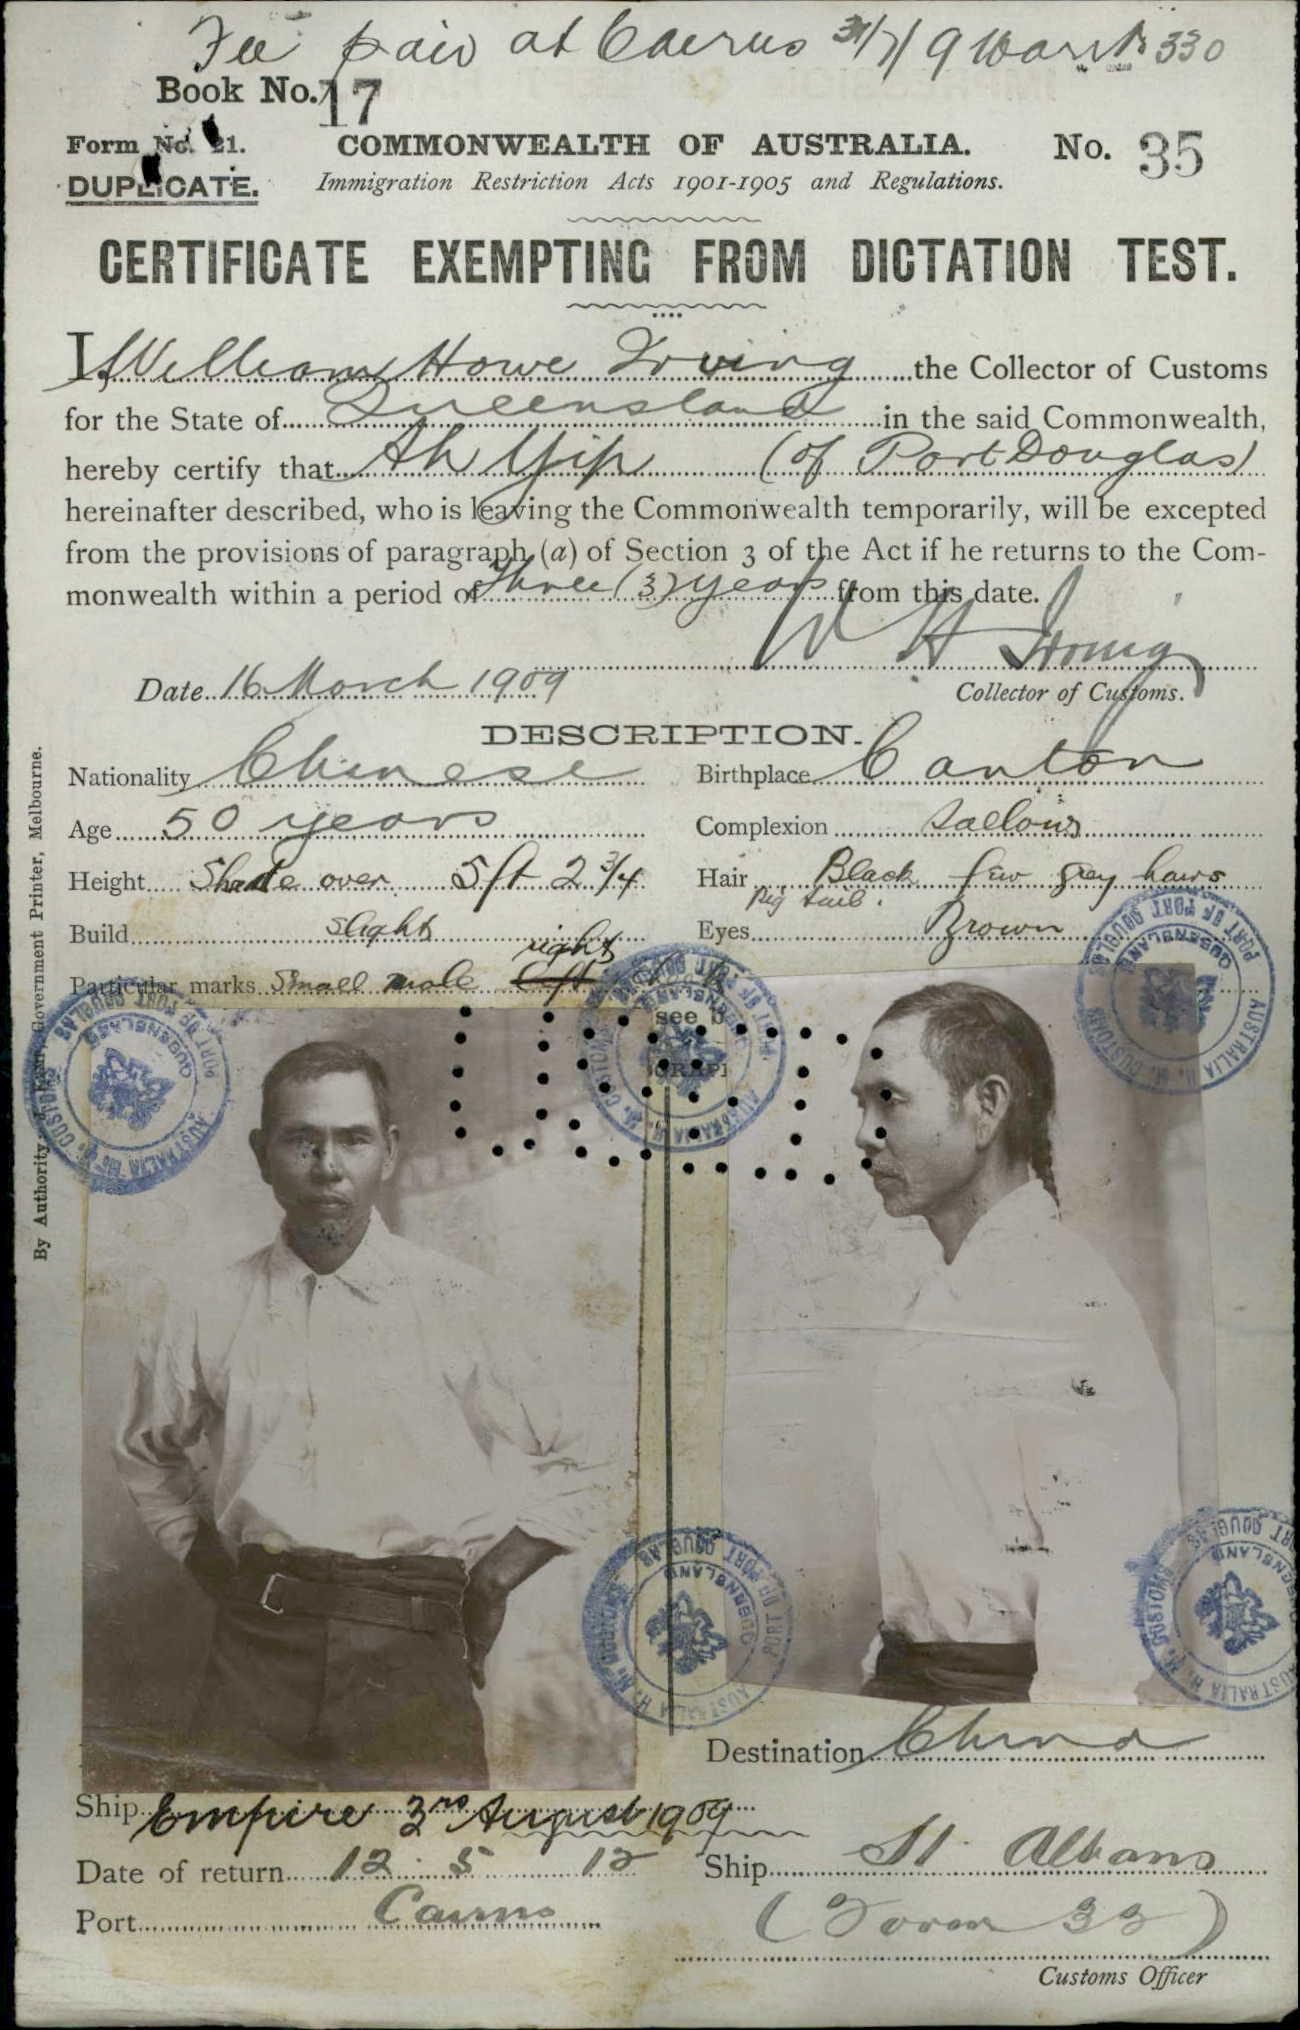 Fee paid at Cairns 31/7/9 330
Book No. 17
Form No. 21.
COMMONWEALTH OF AUSTRALIA.
No. 35
DUPLICATE.
Immigration Restriction Acts 1901-1905 and Regulations.
CERTIFICATE EXEMPTING FROM DICTATION TEST.
I, William Howe Irving the Collector of Customs
for the State of Queensland in the said Commonwealth,
hereby certify that Ah Yip (of Port Douglas)
hereinafter described, who is leaving the Commonwealth temporarily, will be excepted
from the provisions of paragraph (a) of Section 3 of the Act if he returns to the Com-
monwealth within a period of Three (3) years from this date.
W H Irving
Date 16 March 1909
Collector of Customs.
DESCRIPTION.
Nationality Chinese
Birthplace Canton
Age 50 years
Complexion Sallow
Height Shade over 5ft 2 3/4
Hair Black few grey hairs
Pig tail.
Build Slight
Eyes Brown
right
Particular marks Small mole left
see b
GRAP
By Authority: Government Printer, Melbourne.
AUSTRALIA H. M. CUSTOMS PORT OF PORT DOUGLAS QUEENSLAND
AUSTRALIA H. M. CUSTOMS PORT OF PORT DOUGLAS QUEENSLAND
AUSTRALIA H. M. CUSTOMS PORT OF PORT DOUGLAS QUEENSLAND
AUSTRALIA H. M. CUSTOMS PORT OF PORT DOUGLAS QUEENSLAND
AUSTRALIA H. M. CUSTOMS PORT DOUGLAS QUEENSLAND
Destination China
Ship Empire 3rd August 1909
Date of return 12 . 5 12
Ship St Albans
Port Cairns
(Form 33)
Customs Officer